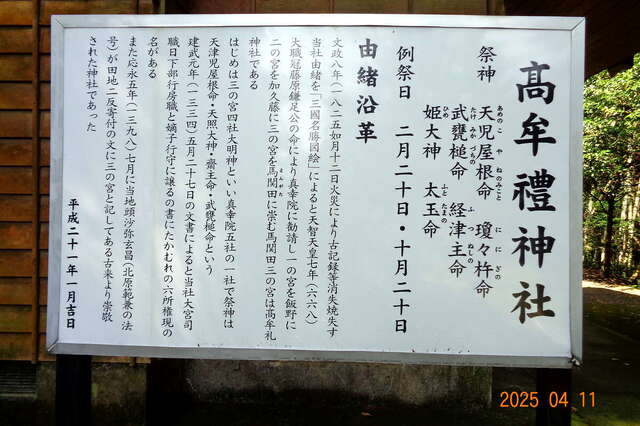 高牟禮神社
祭神 天児屋根命 瓊々杵命
あめのこやねのみこと ににぎの
武甕槌命 経津主命
たけみかづちの ふつぬしの
姫大神 太玉命
ひめ ふとたまの
例祭日 二月二十日・十月二十日
由緒沿革
文政八年(一八二五如月十二日火災により古記録等消失焼失す
当社由緒を「三國名勝図絵」によると天智天皇七年(六六八)
大職冠藤原鎌足公の命により真幸院に勧請し一の宮を飯野に
二の宮を加久藤に三の宮を馬関田に崇む馬関田三の宮は高牟礼
まんがた
神社である
はじめは三の宮四社大明神といい真幸院五社の一社で祭神は
天津児屋根命・天照大神・齋主命・武甕槌命という
建武元年(一三三四)五月二十七日の文書によると当社大宮司
職日下部行房職と嫡子行守に譲るの書にたかむれの六所権現の
名がある
また応永五年(一三九八)七月に当地頭沙弥玄昌(北原範兼の法
号)が田地二反寄付の文に三の宮と記してある古来より崇敬
された神社であった
平成二十一年一月吉日
2025 04 11